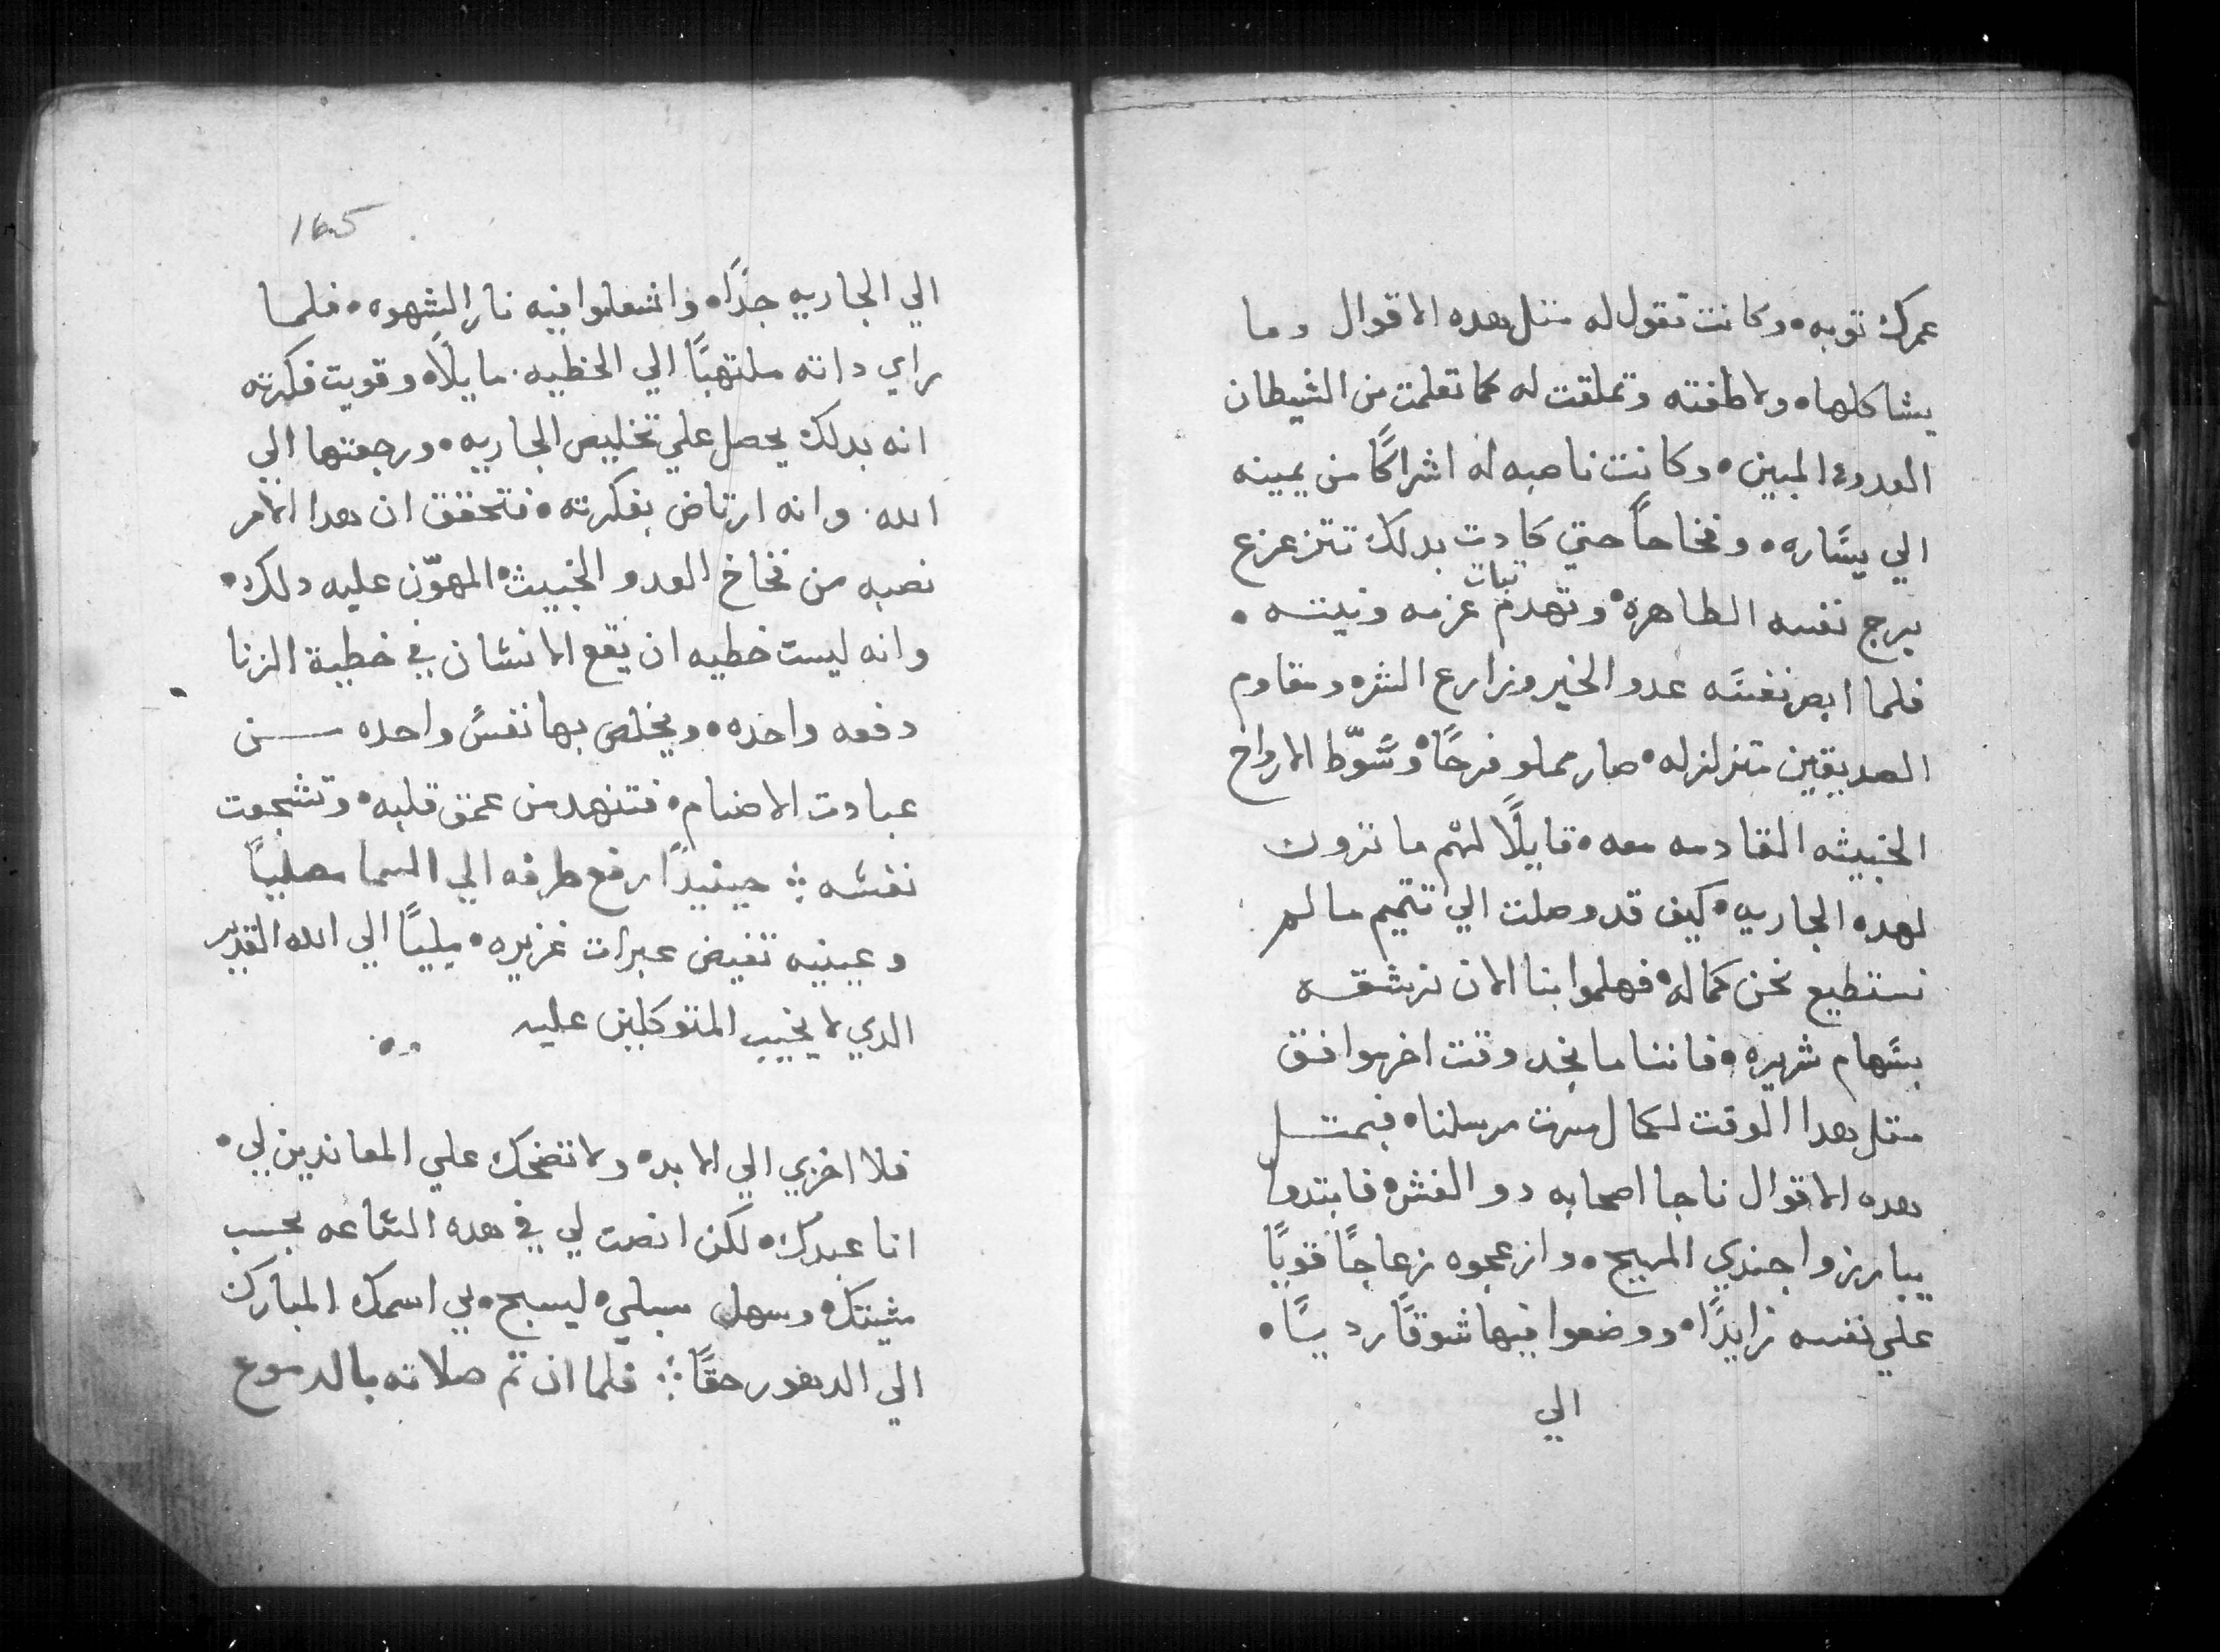 عمرك توبه ٠ وكانت تقول له متل هده الاقوال وما
يشاكلها ٠ ولاطفته وتملقت له كما تعلمت من الشيطان
العدو المبين ٠ وكانت ناصبه له اشراكًا من يمينه
الي يساره ٠ وفخاخًا حتي كادت بدلك تتزعزع
برج نفسه الطاهره ٠ وتهدم تبات عزمه ونيته ٠
فلما ابصر نفسه عدو الخير وزارع الشر ٠ ومقاوم
الصديقين متزلزله ٠ صار مملو فرحًا ٠ وسّوط الارواح
الخبيثه القادمه معه ٠ قايلًا لهم ما ترون
لهده الجاريه ٠ كيف قد وصلت الي تتميم ما لم
نستطيع نحن كماله ٠ فهلموا بنا الان نرشقه
بسهام شريره ٠ فاننا ما نجد وقت اخر موافق
متل هدا الوقت لكمال مسرت مرسلنا ٠ فبمتل
هده الاقوال ناجا اصحابه دو الغش ٠ فابتدوا
يبارزوا جندي المسيح ٠ وازعجوه زعاجًا قويًا
علي نفسه زايدًا ٠ ووضعوا فيها شوقًا رديًا ٠
الي
165
الي الجاريه جدًا ٠ واشعلوا فيه نار الشهوه ٠ فلما
راي داته ملتهبًا الي الخطيه ٠ مايلًا ٠ وقويت فكرته
انه بدلك يحصل علي تخليص الجاريه ٠ ورجعتها الي
الله ٠ وانه ارتاض بفكرته ٠ فتحقق ان هدا الامر
نصبه من فخاخ العدو الخبيث ٠ المهوّن عليه دلك ٠
وانه ليست خطيه ان يقع الانسان في خطية الزنا
دفعه واحده ٠ ويخلص بها نفسً واحده من
عبادت الاصنام ٠ فتنهد من عمق قلبه ٠ وتشجعت
نفسه ؞ حينيدًا رفع طرفه الي السما مصليًا
وعينيه تفيض عبرات غزيره ٠ مليًا الي الله القدير
الدي لا يخيب المتوكلين عليه ٠
فلا اخزي الي الابد ٠ ولا تضحك علي المعاندين لي ٠
انا عبدك ٠ لكن انصت لي في هده الساعه بحسب
مشيتك ٠ وسهل سبلي ٠ ليسبح بي اسمك المبارك
الي الدهور حقًا ؞ فلما ان تم صلاته بالدموع